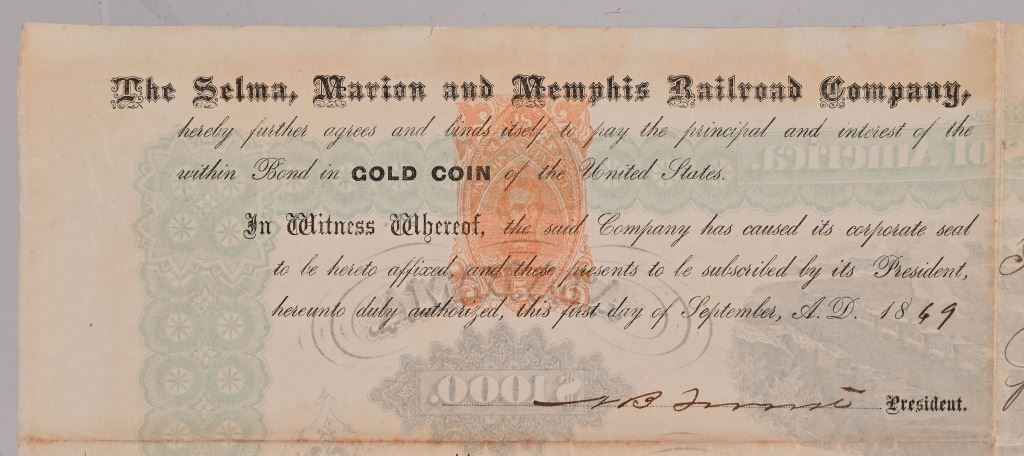 The Selma, Marion and Memphis Railroad Company,
hereby further agrees and binds itself to pay the principal and interest of the
within Bond in GOLD COIN of the United States.
In Witness Whereof, the said Company has caused its corporate seal
to be hereto affixed, and these presents to be subscribed by its President,
hereunto duly authorized, this first day of September, A. D. 1869
$1000.
N B Forrest President.
of America.